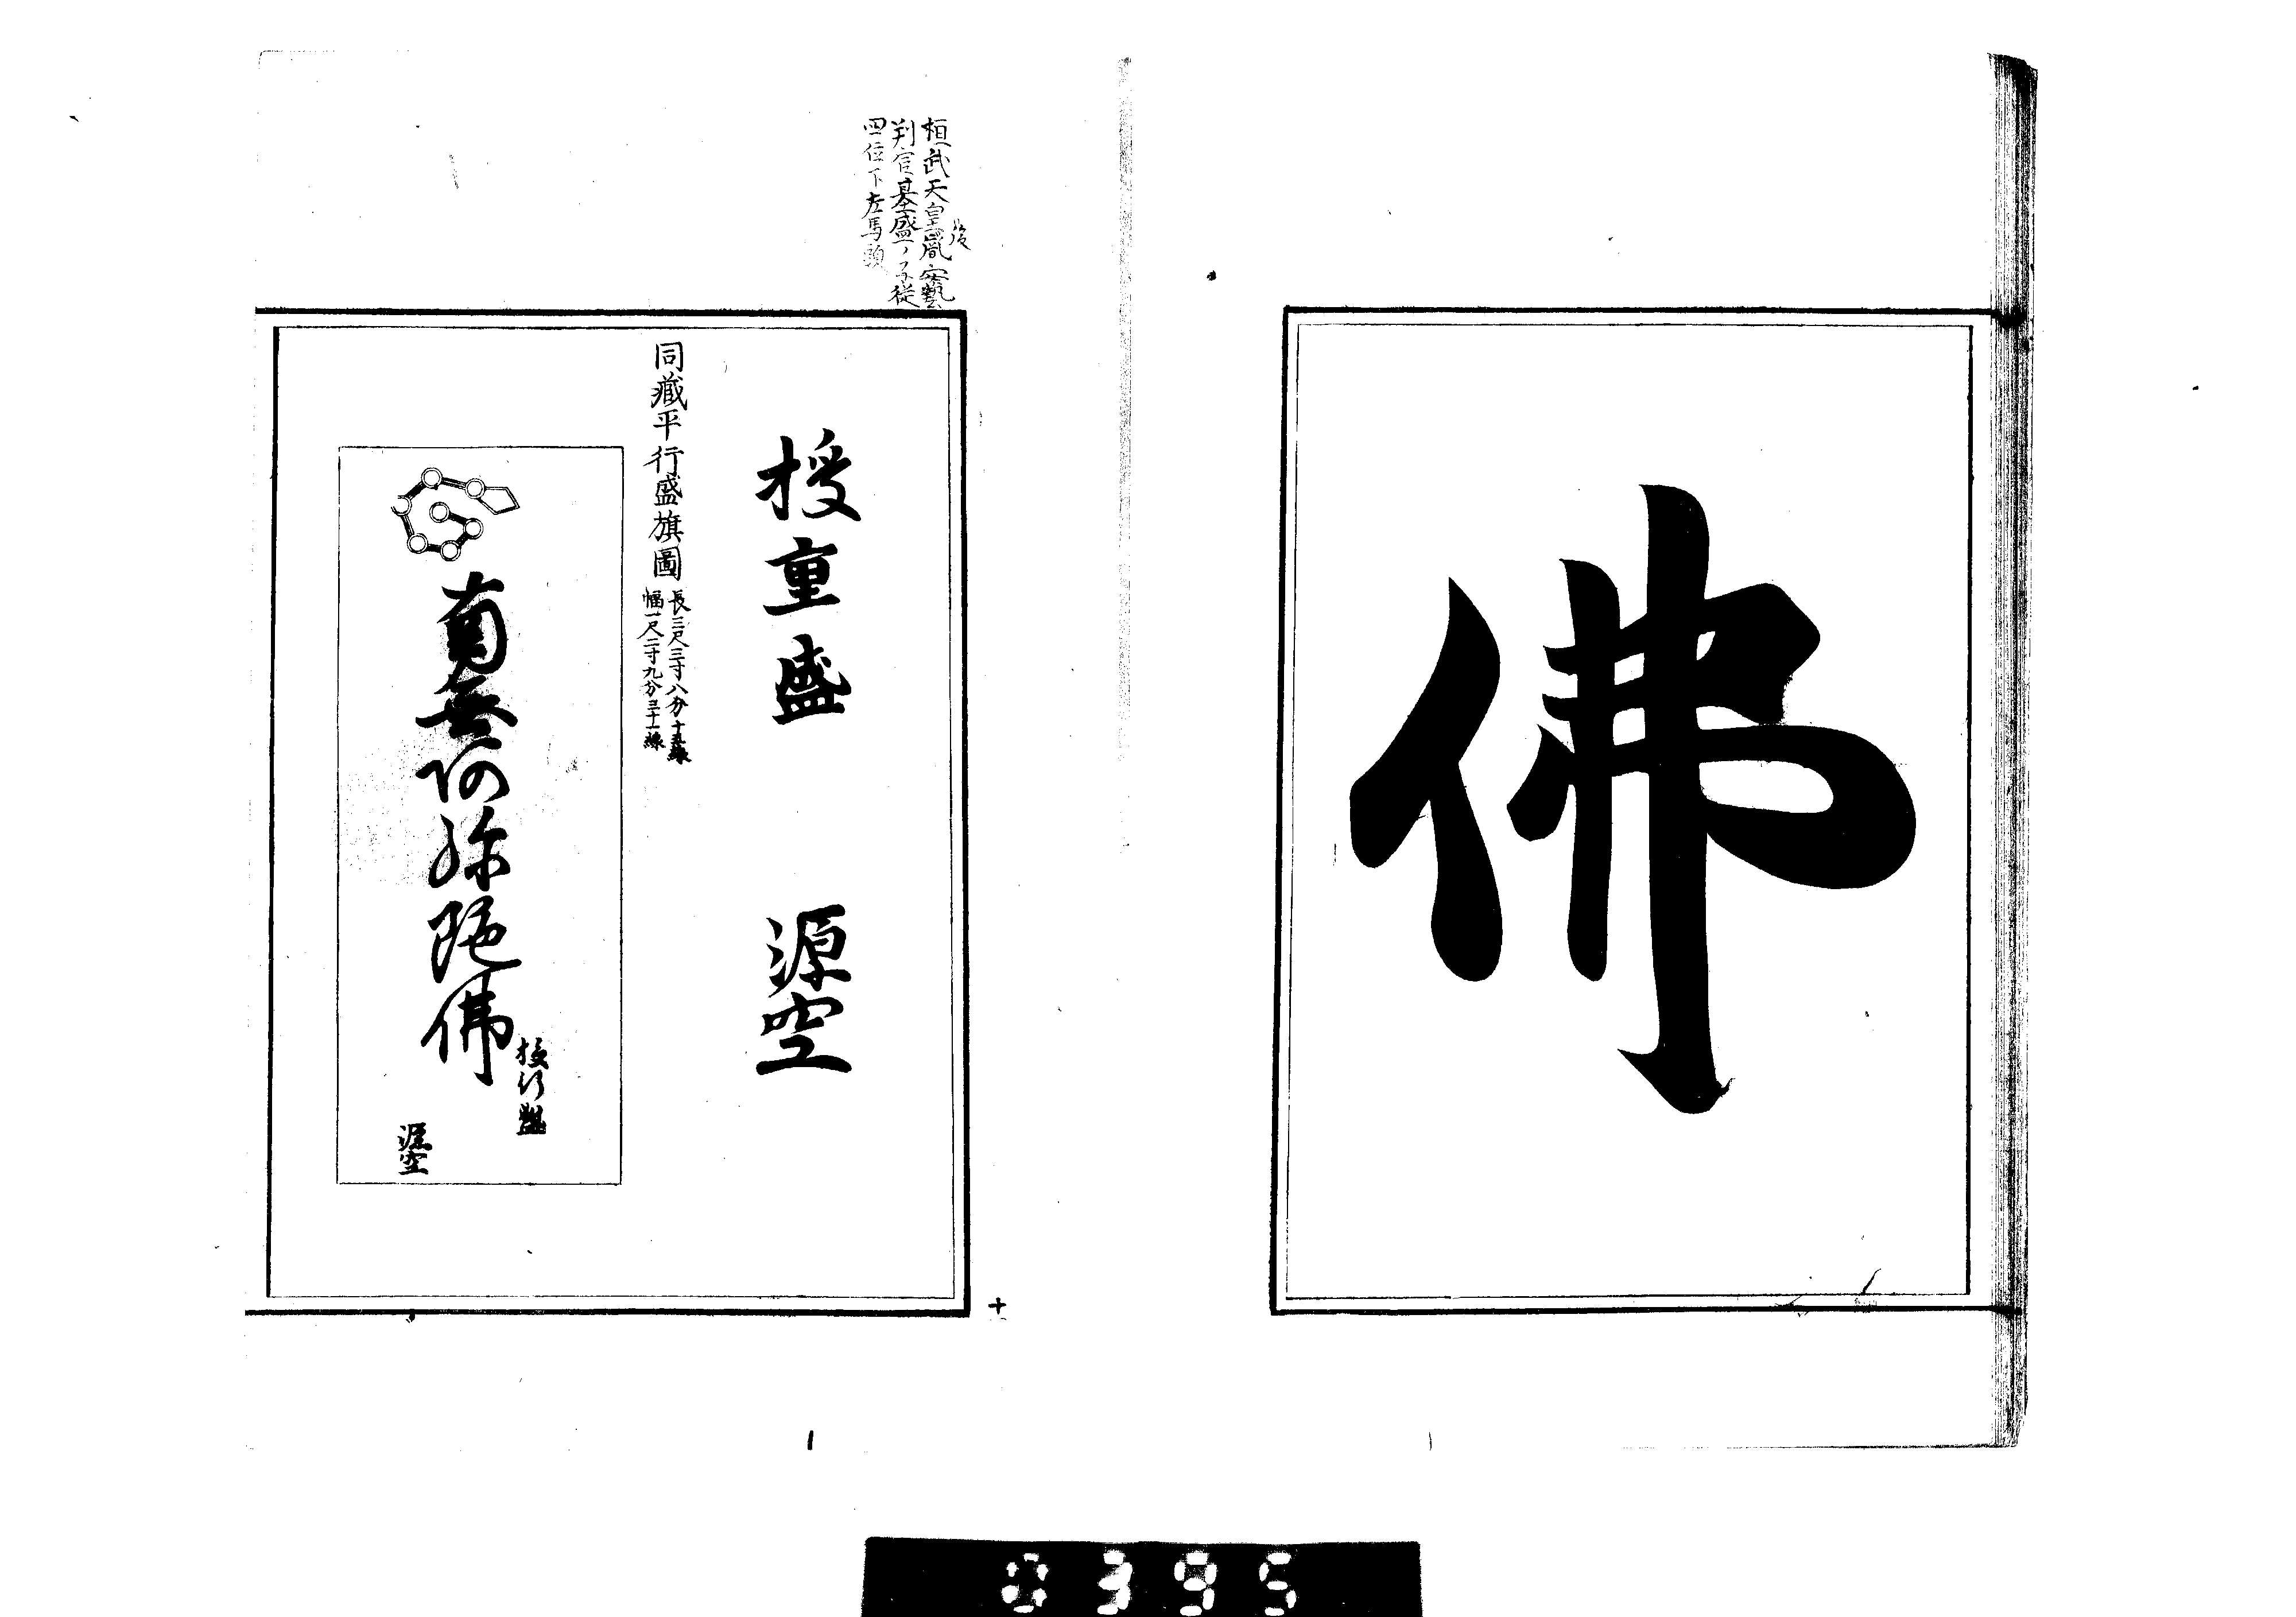 佛
桓武天皇胤安藝
後
判官基盛ノ子從
四位下左馬頭
授重盛 源空
同藏平行盛旗圖
長三尺三寸八分
幅一尺二寸九分
南無阿弥陀佛
授行盛
源空
0395